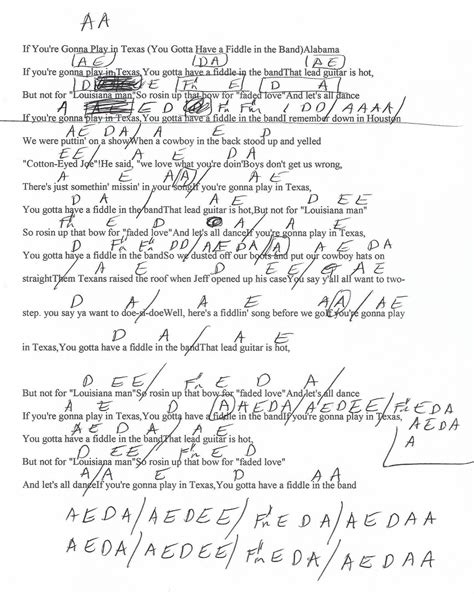 A A
If You're Gonna Play in Texas (You Gotta Have a Fiddle in the Band)Alabama
(A E) (DA) (A E)
If you're gonna play in Texas,You gotta have a fiddle in the bandThat lead guitar is hot,
D E F#m E D A
But not for "Louisiana man"So rosin up that bow for "faded love"And let's all dance
A E D F#m F#m / D D / A A A A /
If you're gonna play in Texas,You gotta have a fiddle in the bandI remember down in Houston
A E D A / A E D
We were puttin' on a showWhen a cowboy in the back stood up and yelled
E E / A E D A
"Cotton-Eyed Joe"!He said, "we love what you're doin'Boys don't get us wrong,
A E A (A) / A E
There's just somethin' missin' in your songIf you're gonna play in Texas,
D A / A E D E E
You gotta have a fiddle in the bandThat lead guitar is hot,But not for "Louisiana man"
F#m E D A / A E
So rosin up that bow for "faded love"And let's all danceIf you're gonna play in Texas,
D F#m D D / A E D A / (A) A E D A
You gotta have a fiddle in the bandSo we dusted off our boots and put our cowboy hats on
A E D E E / A E
straightThem Texans raised the roof when Jeff opened up his caseYou say y'all all want to two-
D A / A E A (A) / A E
step. you say ya want to doe-si-doeWell, here's a fiddlin' song before we goIf you're gonna play
D A / A E
in Texas,You gotta have a fiddle in the bandThat lead guitar is hot,
D E E / F#m E D A /
But not for "Louisiana man"So rosin up that bow for "faded love"And let's all dance
A E D (A) A E D A / A E D E E / F#m E D A
If you're gonna play in Texas,You gotta have a fiddle in the bandIf you're gonna play in Texas,
A E D A / A E A E D A
You gotta have a fiddle in the bandThat lead guitar is hot,
D E E / F#m E D A
But not for "Louisiana man"So rosin up that bow for "faded love"
A / A E D A A
And let's all danceIf you're gonna play in Texas,You gotta have a fiddle in the band
A E D A / A E D E E / F#m E D A / A E D A A
A E D A / A E D E E / F#m E D A / A E D A A